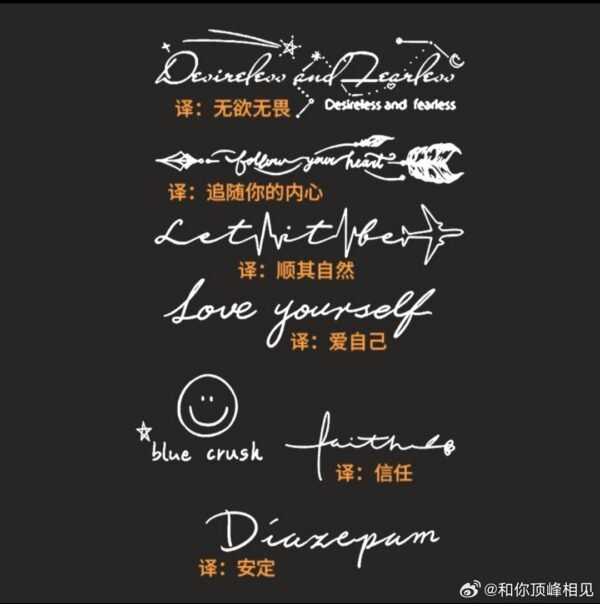 Desireless and Fearless
译：无欲无畏
Desireless and fearless
follow your heart
译：追随你的内心
Let it be
译：顺其自然
Love yourself
译：爱自己
blue crush
faith
译：信任
Diazepam
译：安定
@和你顶峰相见